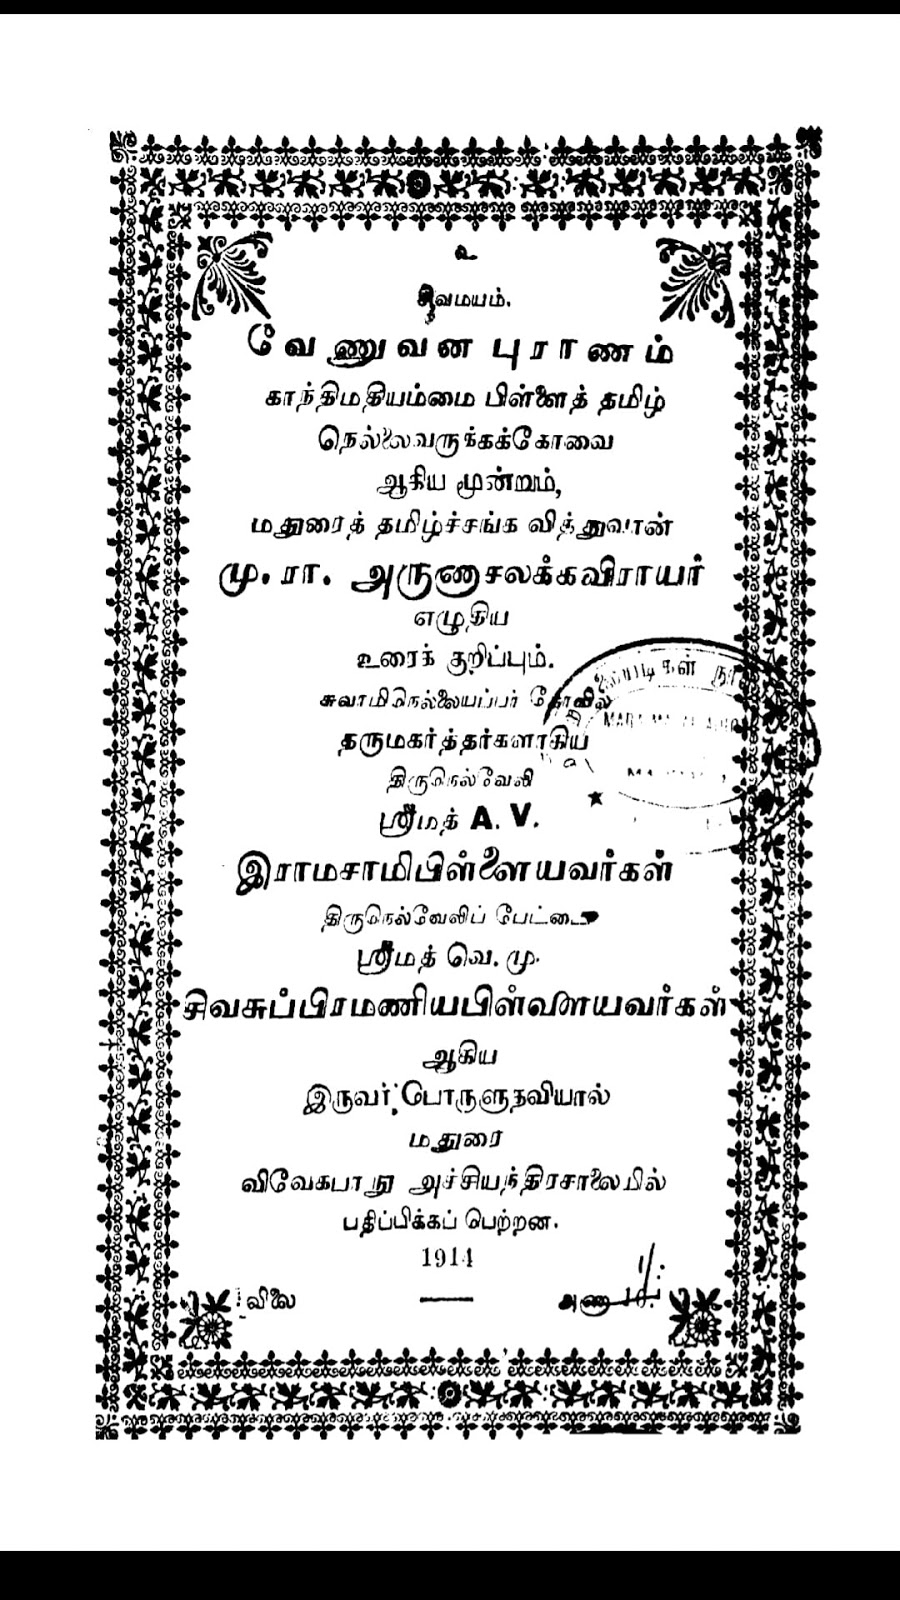 உ
சிவமயம்.
வேணுவன புராணம்
காந்திமதியம்மை பிள்ளைத் தமிழ்
நெல்லைவருக்கக்கோவை
ஆகிய மூன்றும்,
மதுரைத் தமிழ்ச்சங்க வித்துவான்
மு. ரா. அருணாசலக்கவிராயர்
எழுதிய
உரைக் குறிப்பும்.
சுவாமிநெல்லையப்பர் கோவில்
தருமகர்த்தர்களாகிய
திருநெல்வேலி
ஸ்ரீமத் A. V.
இராமசாமிபிள்ளையவர்கள்
திருநெல்வேலிப் பேட்டை
ஸ்ரீமத் வெ. மு.
சிவசுப்பிரமணியபிள்ளையவர்கள்
ஆகிய
இருவர் பொருளுதவியால்
மதுரை
விவேகபாநு அச்சியந்திரசாலையில்
பதிப்பிக்கப் பெற்றன.
1914
விலை
அணா